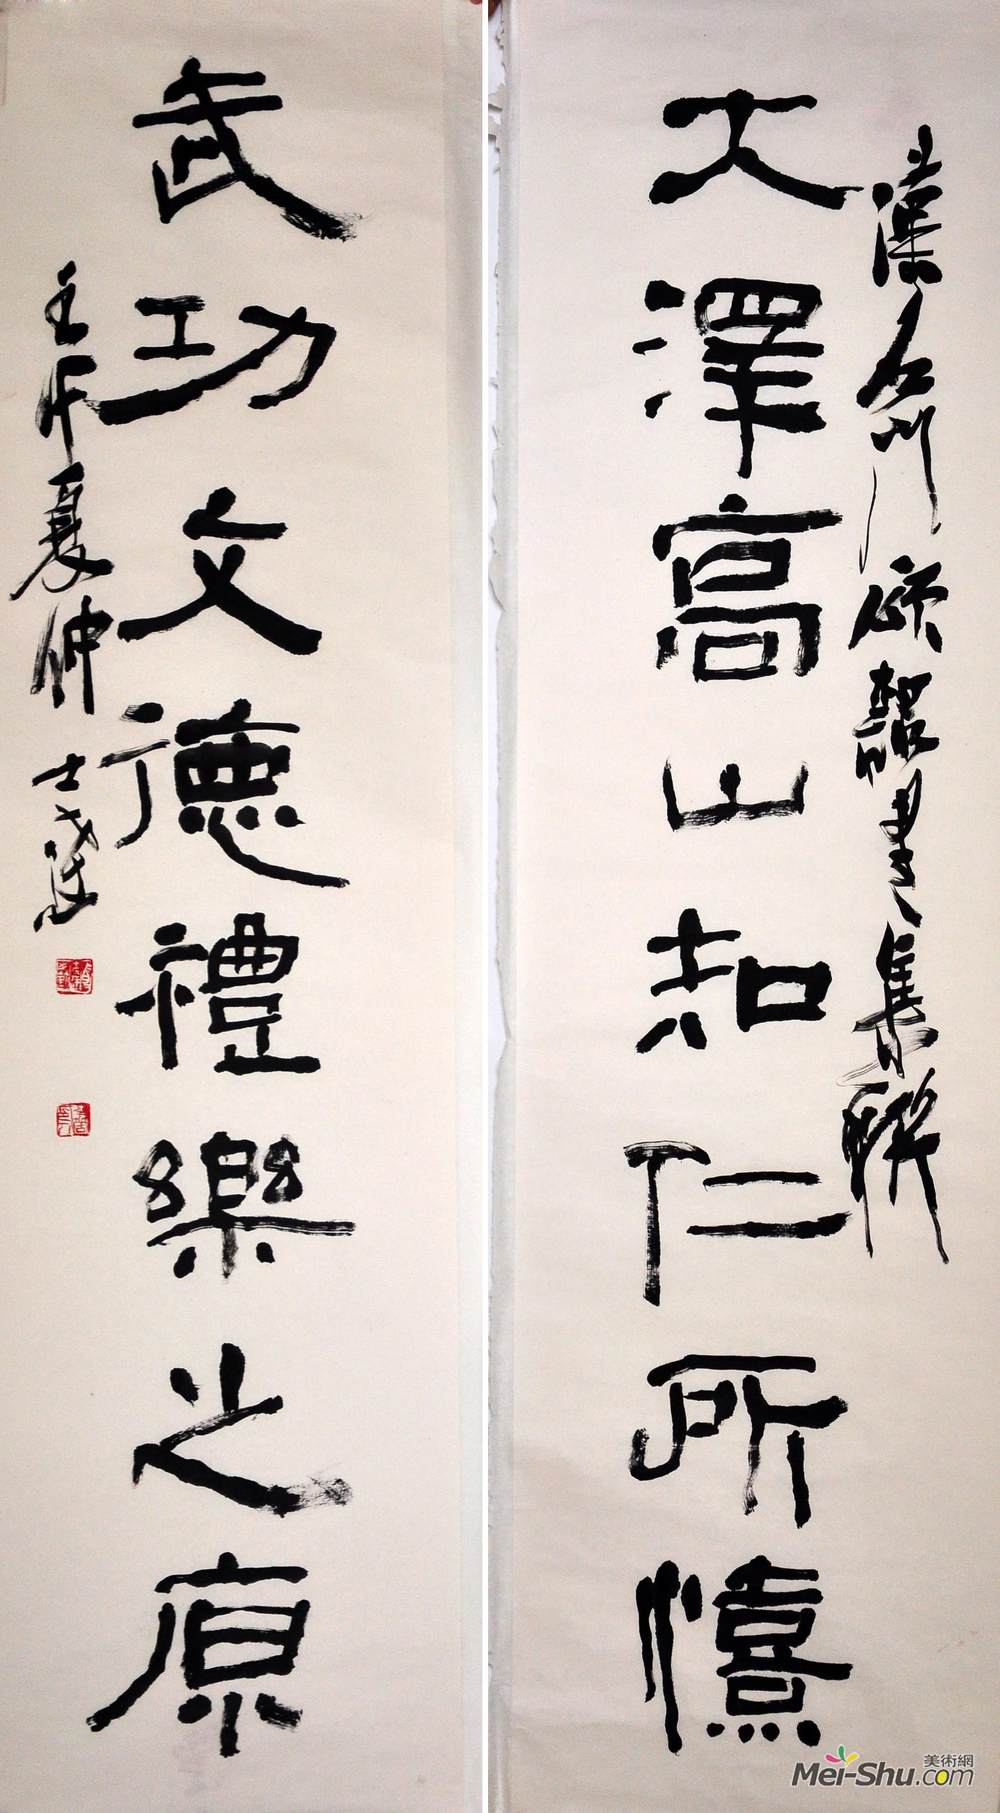 漢石門頌書集聯
大澤高山知仁所憘
武功文德禮樂之原
壬午夏仲士
Mei-Shu.com 美術網